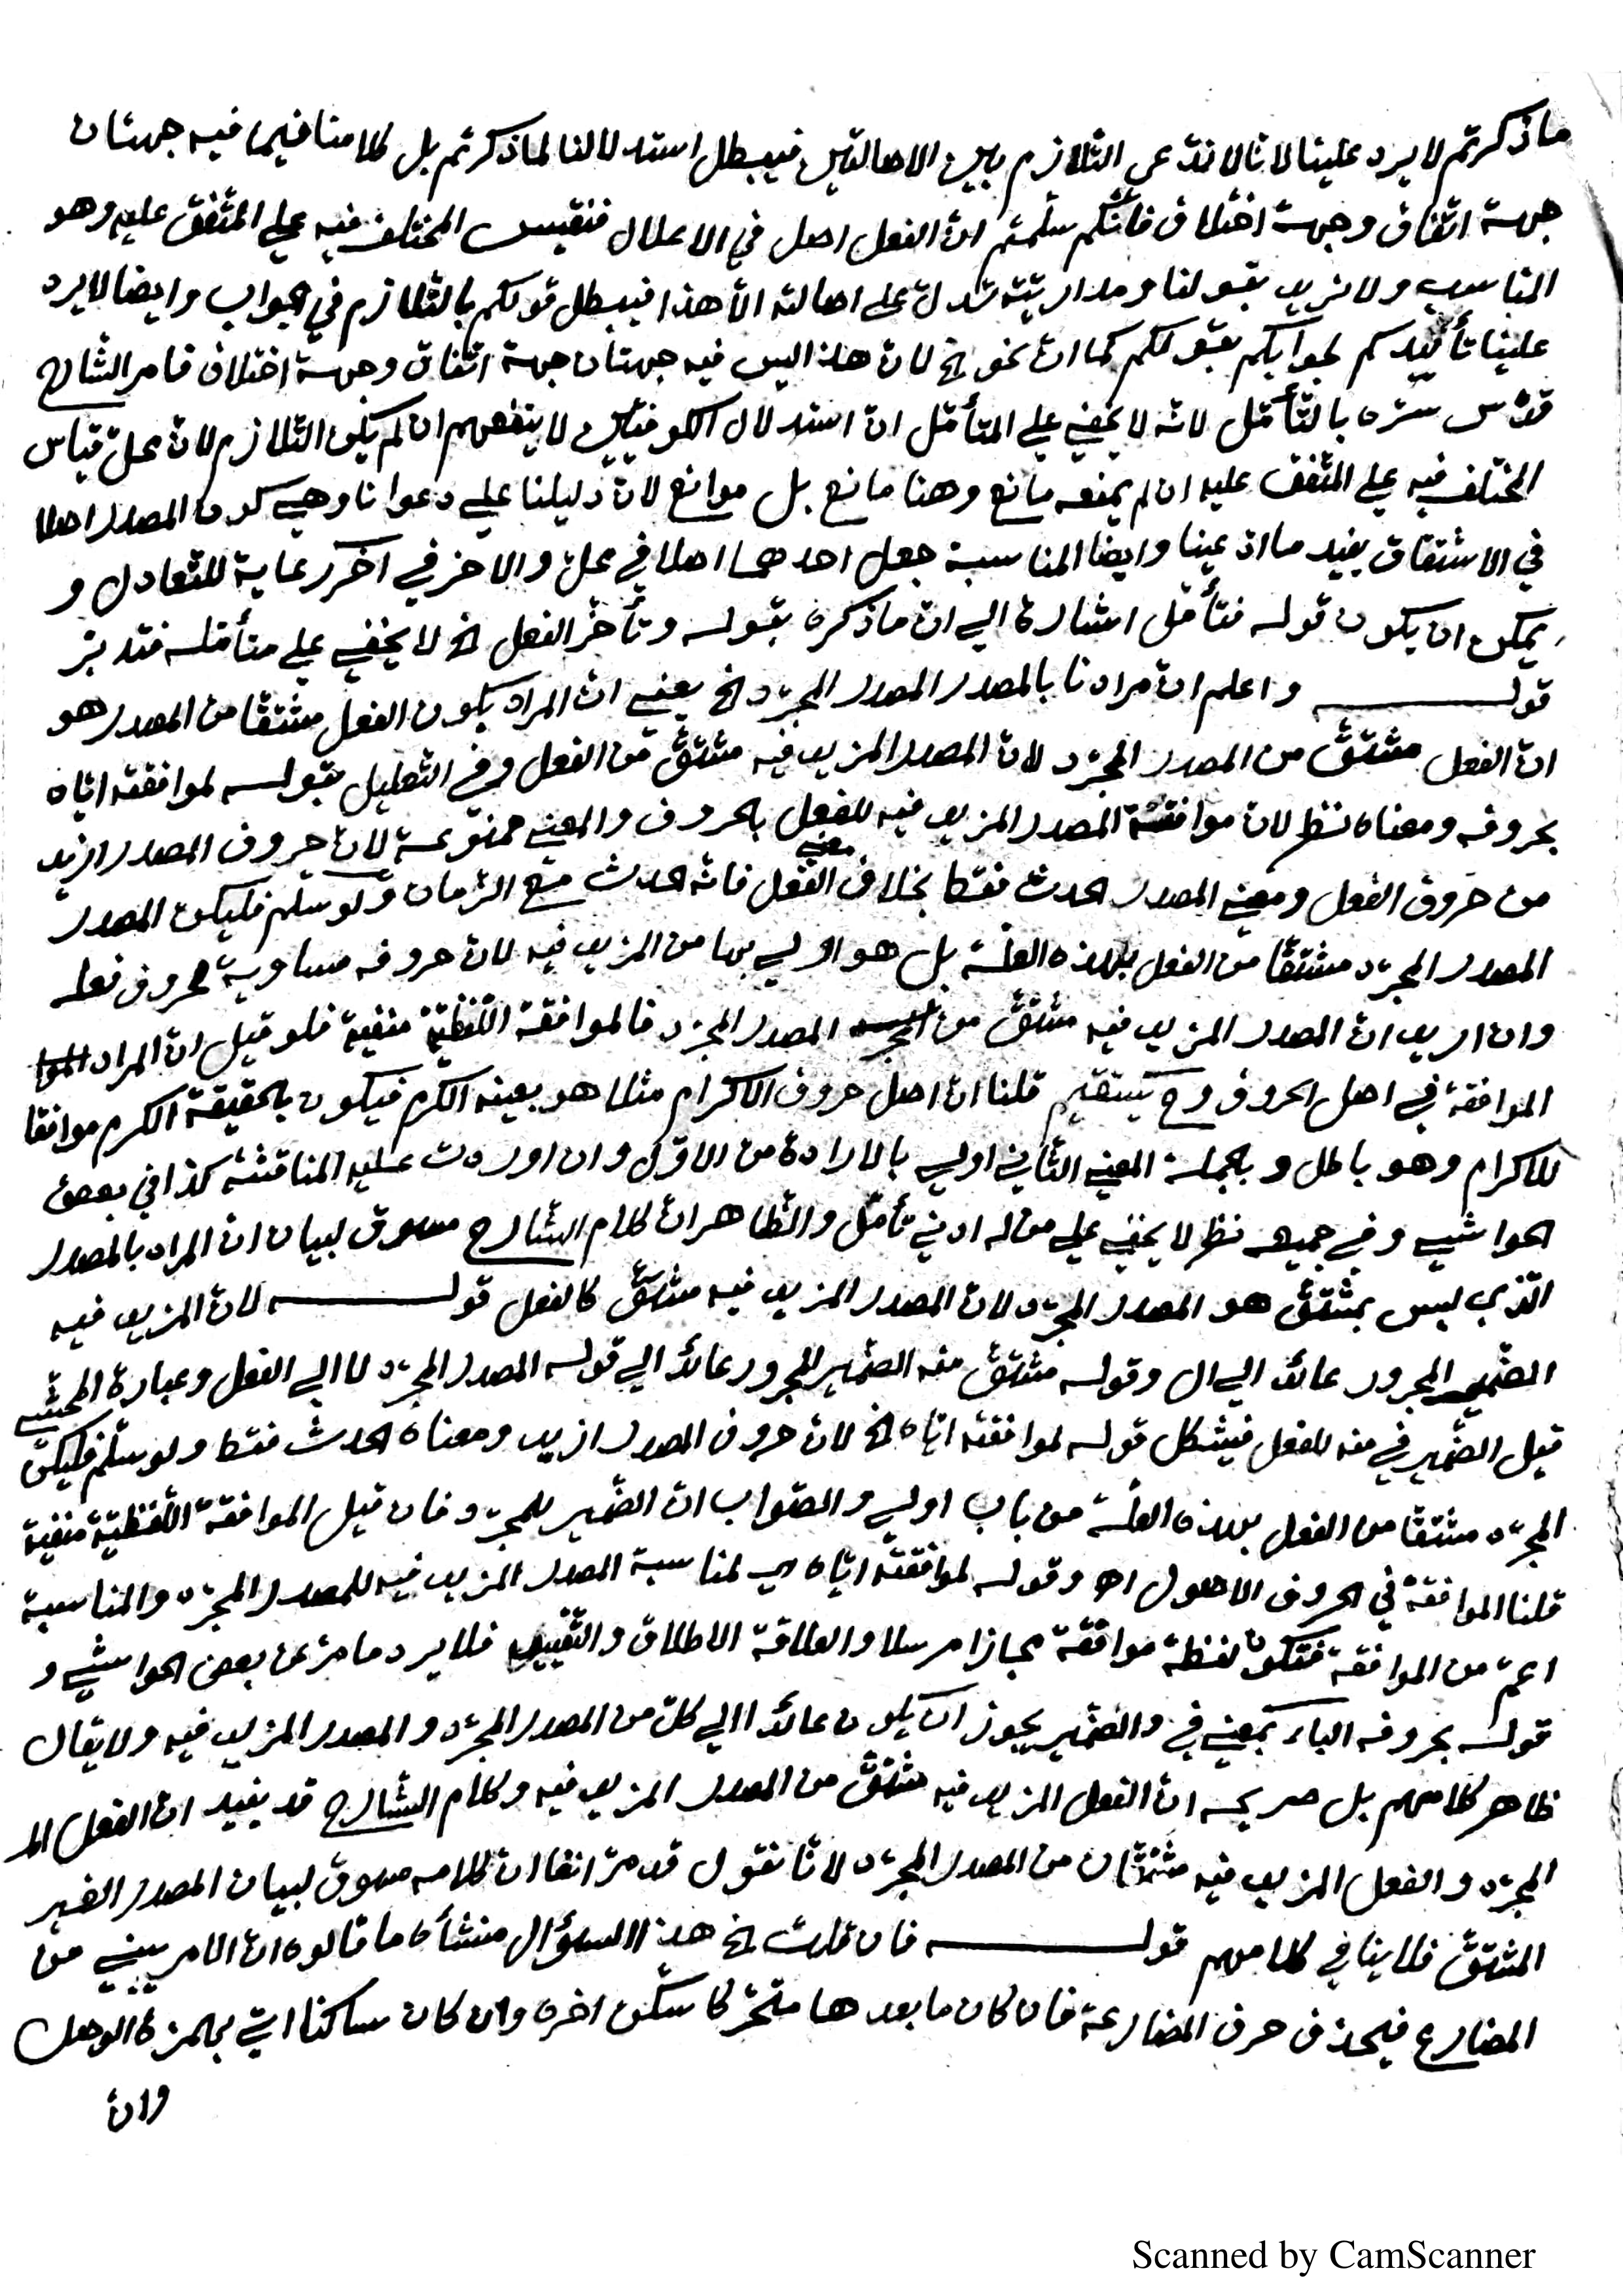 ماذكرتم لا يرد علينا لانا لا ندّعي التلازم بين الاصالتين فيبطل استدلالنا لماذكرتم بل كلامنا فيما فيه جهتان
جهة اتفاق وجهة اختلاف فانكم سلّمتم انّ الفعل اصل في الاعلال فنقيس المختلف فيه علي المتّفق عليه وهو
المناسب ولا نريد بقولنا ومداريته تدلّ علي اصالته الّا هذا فيبطل قولكم بالتلازم في الجواب وايضا لا يرد
علينا تأييدكم لجوابكم بقولكم كما ان نحو الخ لان هذا ليس فيه جهتان جهة اتفاق وجهة اختلاف فامر الشّارح
قدّس سرّه بالتأمّل لانّه لا يخفي علي المتأمّل ان استدلال الكوفيّين لا ينفعهم ان لم يكن التلازم لانّ محلّ قياس
المختلف فيه علي المتّفق عليه ان لم يمنعه مانع وهنا مانع بل موانع لانّ دليلنا علي دعوانا وهي كون المصدر اصلا
في الاشتقاق يفيد ما ادّعينا وايضا المناسبة جعل احدهما اصلا في محلّ والاخر في اخر رعاية للتّعادل و
يمكن ان يكون قوله فتأمّل اشارة الي ان ماذكره بقوله وتأخّر الفعل الخ لا يخفي علي متأمّله فتدبّر
قوله واعلم ان مرادنا بالمصدر المصدر المجرّد الخ يعني انّ المراد بكون الفعل مشتقّا من المصدر هو
ان الفعل مشتقّ من المصدر المجرّد لانّ المصدر المزيد فيه مشتقّ من الفعل وفي التعليل بقوله لموافقته ايّاه
بحروفه ومعناه نظر لانّ موافقة المصدر المزيد فيه للفعل بالحروف والمعني ممنوعة لانّ حروف المصدر ازيد
من حروف الفعل ومعني المصدر الحدث فقط بخلاف معني الفعل فانّه الحدث مع الزّمان ولو سلّم فليكن المصدر
المصدر المجرّد مشتقّا من الفعل بهذه العلّة بل هو اولي بها من المزيد فيه لانّ حروفه مساوية لحروف فعله
وان اريد انّ المصدر المزيد فيه مشتقّ من المصدر المجرّد فالموافقة اللّفظيّة منفية فلو قيل انّ المراد
الموافقة في اصل الحروف وح يستقيم قلنا انّ اصل حروف الاكرام مثلا هو بعينه الكرم فيكون بالحقيقة الكرم موافقا
للاكرام وهو باطل وبالجملة المعني الثّاني اولي بالارادة من الاوّل وان اوردت عليه المناقشة كذا في بعض
الحواشي وفي جميعه نظر لا يخفي علي من له ادني تأمّل والظّاهر انّ كلام الشّارح مسوق لبيان ان المراد بالمصدر
الّذي ليس بمشتقّ هو المصدر المجرّد لانّ المصدر المزيد فيه مشتقّ كالفعل قوله لانّ المزيد فيه
الضّمير المجرور عائد الي ال وقوله مشتقّ منه الضّمير المجرور عائد الي قوله المصدر المجرّد لا الي الفعل وعبارة المحشّي
قيل الضّمير في منه للفعل فيشكل قوله لموافقته ايّاه الخ لانّ حروف المصدر ازيد ومعناه الحدث فقط ولو سلّم فليكن
المجرّد مشتقّا من الفعل بهذه العلّة من باب اولي والصّواب انّ الضّمير للمجرّد فان قيل الموافقة اللّفظيّة منفية
قلنا الموافقة في الحروف الاصول اه وقوله لموافقته ايّاه اي لمناسبة المصدر المزيد فيه للمصدر المجرّد والمناسبة
اعمّ من الموافقة فتكون لفظة موافقة مجازا مرسلا والعلاقة الاطلاق والتّقييد فلا يرد ما مرّ عن بعض الحواشي و
قوله بحروفه الباء بمعني في والضّمير يجوز ان يكون عائدا الي كلّ من المصدر المجرّد والمصدر المزيد فيه ولا يقال
ظاهر كلامهم بل صريحه ان الفعل المزيد فيه مشتقّ من المصدر المزيد فيه وكلام الشّارح قد يفيد انّ الفعل الم
المجرّد والفعل المزيد فيه مشتقّان من المصدر المجرّد لانّا نقول قد مرّ انفا انّ كلامه مسوق لبيان المصدر الغير
المشتقّ فلا ينافي كلامهم قوله فان قلت الخ هذا السؤال منشأه ما قالوه انّ الامر يبني من
المضارع فيحذف حرف المضارعة فان كان مابعدها متحرّكا سكّن اخره وان كان ساكنا اتي بهمزة الوصل
وان
Scanned by CamScanner